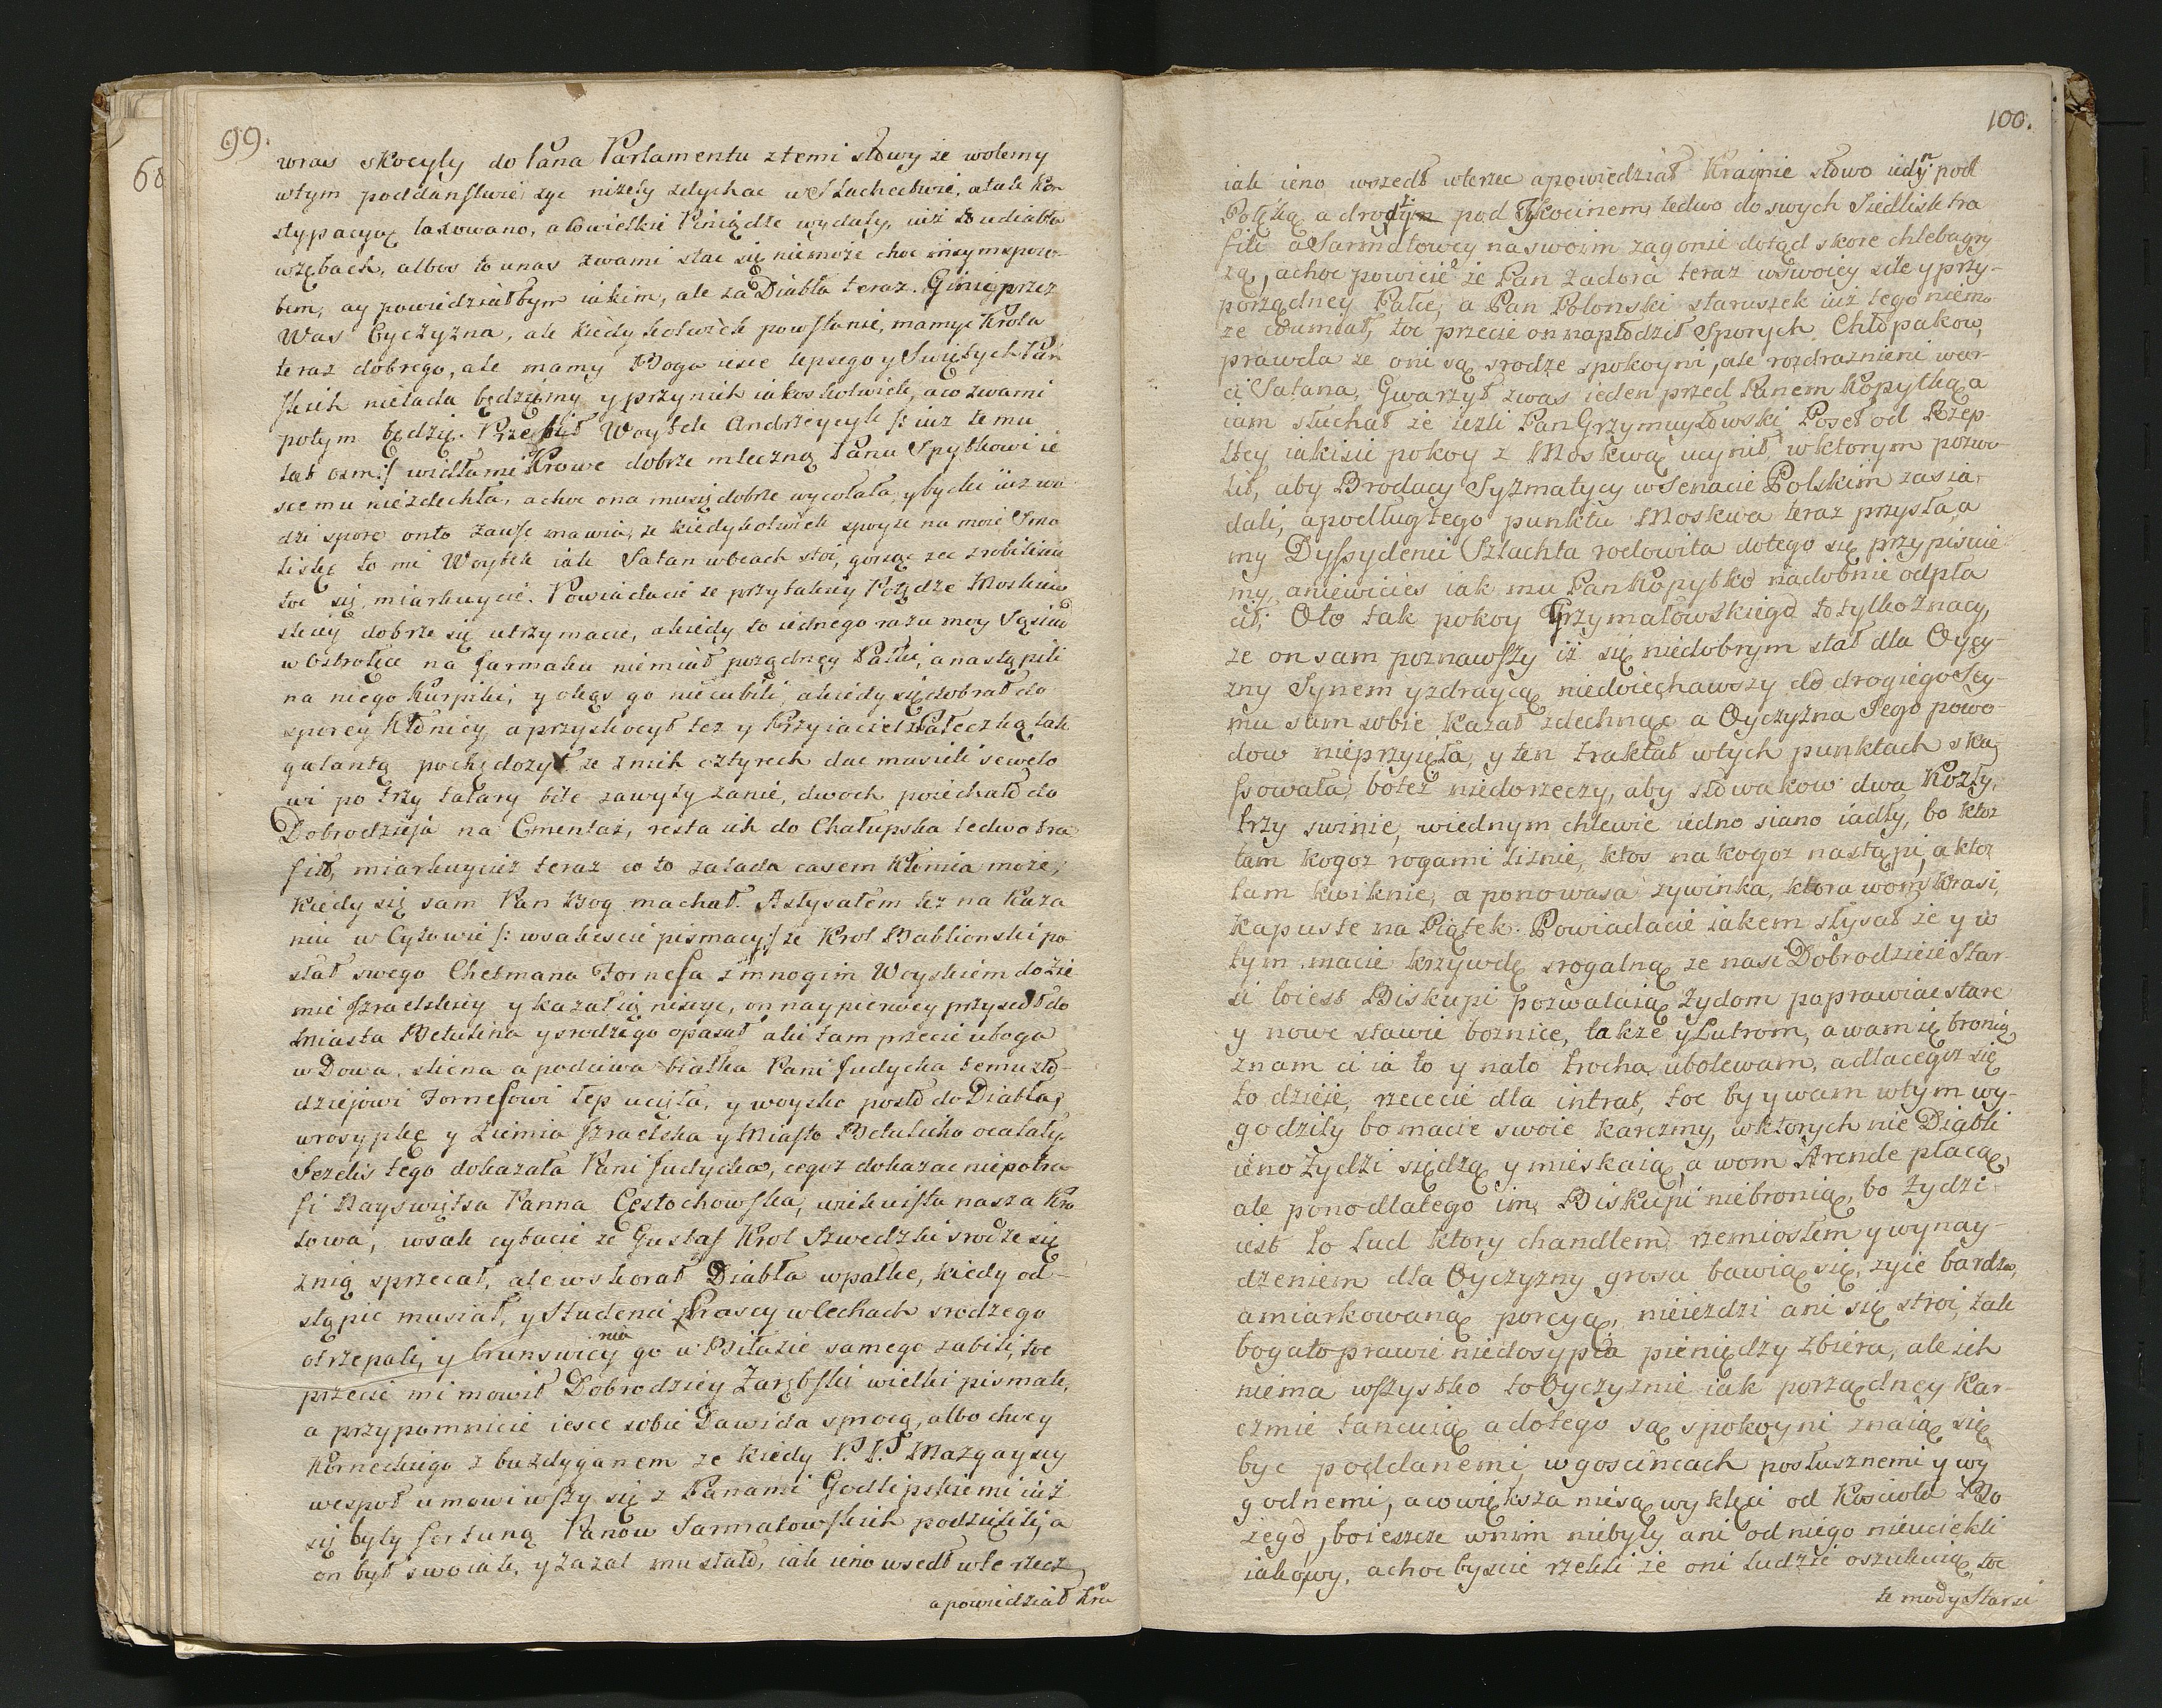 99.
wras skocyly do Pana Parlamentu z temi słowy ze wolemy
wtym poddanstwie zyc nizely zdychac w Slachectwie, a tak kon
stypacyą laxowano, a Cowielkie Piniądze wydały, iuż to udiabła
wzębach, albos to unas zwami stac się niemoże choc inszym sposo-
bem, ay powiedziałbym iakim, ale za Diabła teraz. Ginie przez
Was Oyczyzna, ale kiedykolwiek powstanie, mamyc Krola
teraz dobrego, ale mamy Boga iesce lepsego y Swiętych Pań
skich nielada będziemy y przynich iakoskolwiek, aco zwami
potym będzie. Przebił Woytek Andrzeycyk /: iuz temu
lat osm :/ widłami Krowe dobrze mleczną Panu Spytkowi ie
scemu niezdechła, achoc ona musię dobrze wycołała, y bycki iuz wo
dzi spore onto zawse mawia, ze kiedykolwiek spoyze na moie Smo
liskę to mi Woytek iak Satan wocach stoi, gorsze zec zrobilisia
toc się, miarkuycie. Powiadacie ze przytakiey Potędze Moskiew
skiey dobrze się utrzymacie, akiedy to iednego razu moy Sąsiad
w Ostrołęce na Jarmaku niemiał porządney Pałki, a nastąpili
na niego Kurpiki, y okęs go nie ubili, akiedy się dobrał do
sporey Kłonicy aprzyskocył tez y Przyiaciel z Pałeczką tak
galantą pochędozył ze znich cztyrech dac musieli sewclo
wi po trzy talary bite zawyły zanie, dwoch poiechało do
Dobrodzieja na Cmentaż, resta ich do Chałupska ledwo tra
fiło, miarkuyciez teraz co to zalada casem Kłomia może,
Kiedy się sam Pan Bog machał. Asłysałem tez na Kaza
niu w Cyzowie /: wsakescie pismacy :/ ze Krol Bablionski po
słał swego Chetmana Fornesa z mnogim Woyskiem do zie
mie Izraelskiey y kazał ią nisczyc, on naypierwey przysedł do
Miasta Betulina y srodze go opasał aliści tam przecie uboga
wDowa, sliczna apodciwa białka Pani Judycka temu zło-
dziejowi Fornesowi łep ucięła, y woysko poszło do Diabła,
wrosypkę y Ziemia Izraelska y Miasto Betulicka ocalały.
Jezelis tego dokazała Pani Judycka, cegoz dokazac niepotra
fi Nayswiętsa Panna Cęstochowska, wiekuista nasza Kro
lowa, wsak cytacie ze Gustaf Krol Szwedzki srodze się
znią sprzecał, ale wskorał Diabła wpałke, kiedy od-
stąpic musiał, y Studenci Prascy w Cechach srodze go
otrzepali, y brunswicy nia go w Bitazie samego zabili, toc
przecie mi mowił Dobrodziey Zarębski wielki pismak,
a przypomnicie iesce sobie Dawida sprocą, albo chocy
Czarneckiego z buzdyganem ze kiedy P.P. Mazgayscy
wespoł umowiwszy się z Panami Godlipskiemi iuż
się były fortuną Panow Sarmatowskich podzieliły, a
on był swoiak, y zazal mu stało, iak ieno wsedł w te rzecz
apowiedział Kra
100.
iak ieno wszedł wterzec apowiedział Krajnie słowo iedyn pod
Połęką a drugim pod Tykocinem, ledwo do swych Siedlisk tra
fili a Sarmatowcy na swoim zagonie dotąd skore chleba gry
zą, achoc powicie ze Pan Zadora teraz wswoiey sile y przy-
porządney Pałce, a Pan Polonski staruszek iuz tego niemo
ze doumiał, toc przecie on napłodzieł Sporych Chłopakow,
prawda ze oni są srodze spokoyni, ale rozdraznieni war-
ci Satana, Gwarzył zwas ieden przed Panem Kopytką a
iam słuchał ze iezli Pan Grzymuytowski Poseł od Rzep-
ltey iakisie pokoy z Moskwą ucynił, wktorym pozwo
lił, aby Brodacy Syzmatycy wSenacie Polskim zasia-
dali, apodług tego punktu Moskwa teraz przysła, a
my Dyssydenci Szlachta rodowita dotego się przypiscie
my, aniewiecies iak mu Pan Kopytko nadobnie odpła
cił; Oto tak pokoy Grzymałowskiego to tylko znacy,
ze on sam poznawszy iż się niedobrym stał dla Oycy-
zny Synem yzdraycą niedoiechawszy do drogiego Sey-
mu sam sobie kazał zdechnąc a Oyczyzna Iego powo-
dow nieprzyięła, y ten traktat wtych punktach ska-
ssowała, boteż niedorzeczy, aby słowakow dwa Kozły,
trzy swinie, wiednym chlewie iedno siano iadły, bo ktoz
tam kogoz rogami liznie, ktos na kogoz nastąpi, a ktoz
tam kwiknie, a ponowasa zywinka, ktora wom Krasi,
kapuste na Piątek. Powiadacie iakem słysał ze y w
tym macie krzywdę srogalną ze nasi Dobrodzieie Star-
si toiest Biskupi pozwalaią Żydom poprawiac stare
y nowe stawic boznice, także y Lutrom, awam ię bronią
znam ci ia to y nato trochą ubolewam, adlacegoz się
to dzieie, rzececie dla intrat, toc by ywam wtym wy-
godziły bomacie swoie karczmy, wktorych nie Diabli
ieno Żydzi siedzą y mieskaią a wom Arende płacą,
ale ponodlatego im Biskupi niebronią, bo Żydzi
iest to Lud ktory chandlem, rzemiosłem y wynay-
dzeniem dla Oyczyzny grosu bawią się, zyie bardzo,
amiarkowaną porcyą, nieiezdzi ani się stroi, tak
bogato prawie niedosypia pieniędzy zbiera, ale ich
niema wszystko to Oyczyznie iak porządney Kar-
czmie tancuią adotego są spokoyni znaią się
byc poddanemi, w goscincach posłusznemi y wy
godnemi, acowiększa niesą wyklęci od Kościoła Bo
zego, boieszcze wnim niebyły ani odniego nieuciekli
iakowy, achocbyscie rzekli że oni ludzie oszukuią, toc
te mody Starsi